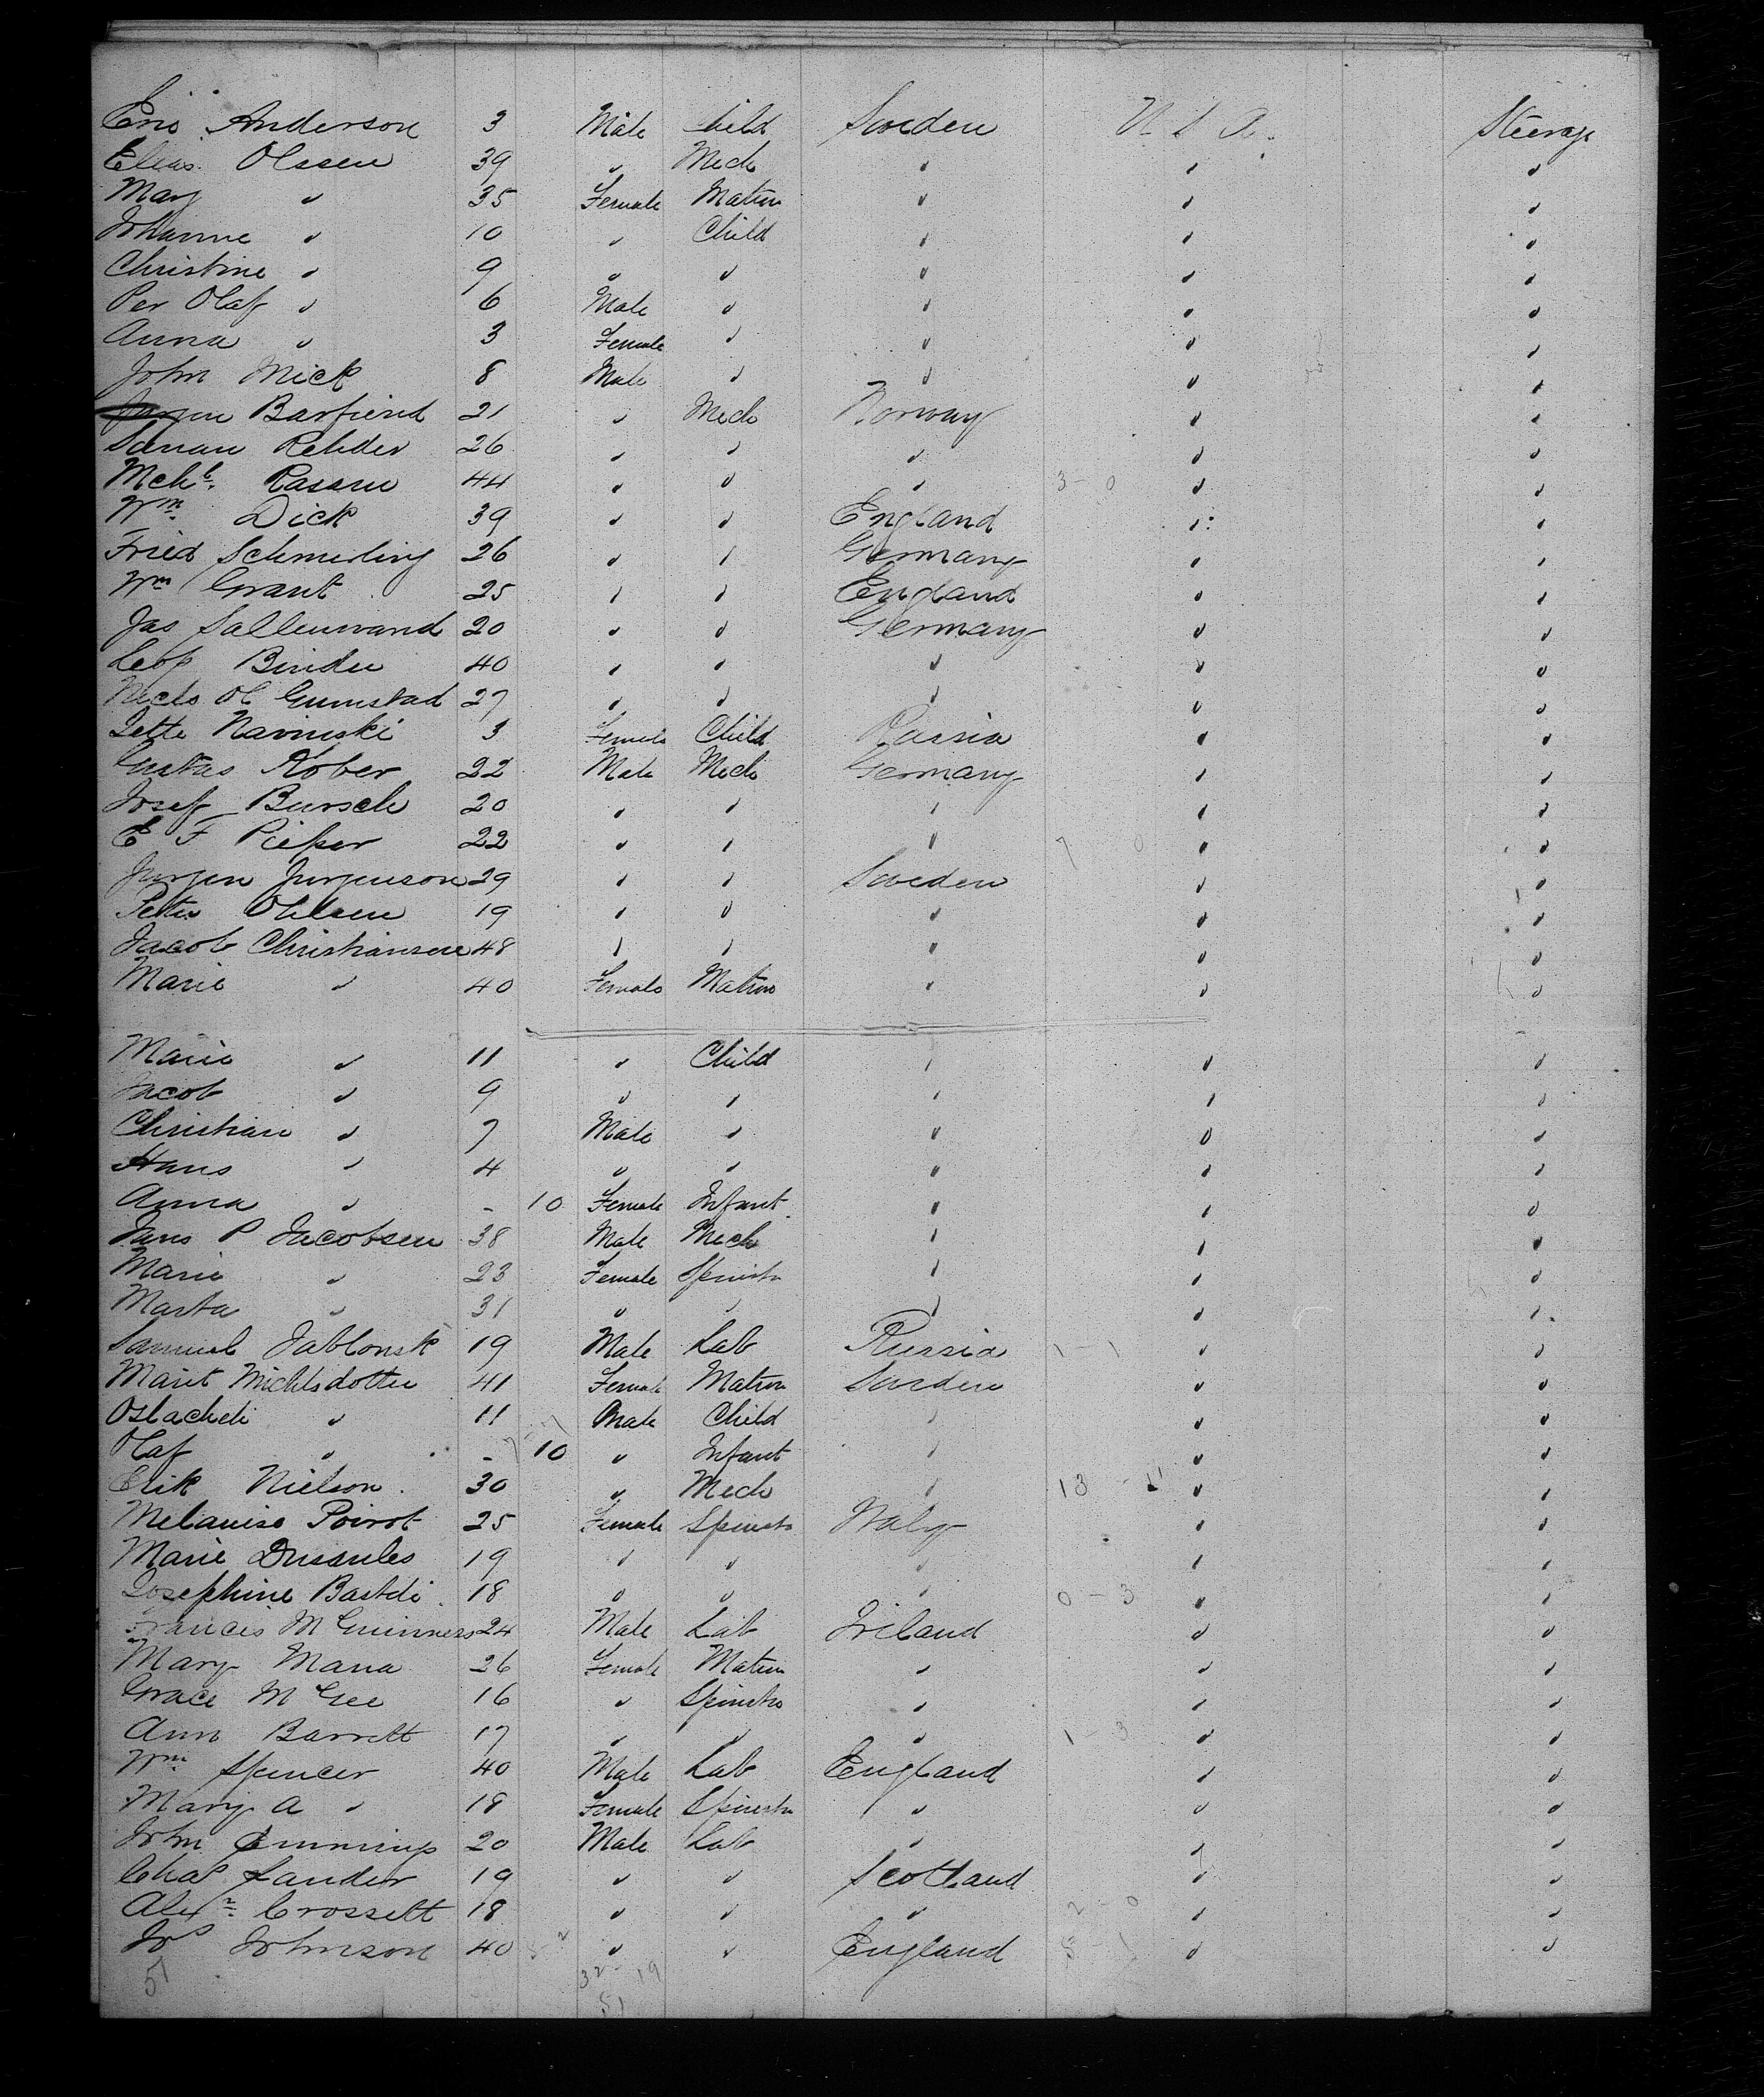 Eric Anderson 3 Male Child Sweden U. S. A. Steerage
Elias Olssen 39 " Mech " " "
Mary " 35 Female Matron " " "
Johanne " 10 " Child " " "
Christine " 9 " " " " "
Per Olaf " 6 Male " " " "
Anna " 3 Female " " " "
John Mick 8 Male " " " "
Jurgen Barfiend 21 " Mech Norway " "
Rehder 26 " " " " "
Mchl. Rassm 44 " " " 3-0 " "
Wm. Dick 39 " " England " "
Fried Schmerling 26 " " Germany " "
Wm Grant 25 " " England " "
Jas Sallenwand 20 " " Germany " "
Leop Binder 40 " " " " "
Niels Ol Gumstad 27 " " " " "
Jette Navinski 3 Female Child Russia " "
Gustav Kober 22 Male Mech Germany " "
Josef Bursch 20 " " " " "
E F Pieper 22 " " " 7 0 " "
Jurgen Jurgenson 29 " " Sweden " "
Peter Ohlsen 19 " " " " "
Jacob Christiansen 48 " " " " "
Marie " 40 Female Matron " " "
Marie " 11 " Child " " "
Jacob " 9 " " " " "
Christian " 7 Male " " " "
Hans " 4 " " " " "
Anna " - 10 Female Infant " " "
Hans P Jacobsen 38 Male Mech " " "
Marie " 23 Female Spinster " " "
Marta " 31 " " " " "
Samuel Jablonsk 19 Male Lab Russia 1-1 " "
Marit Michlsdotter 41 Female Matron Sweden " "
Oslachdi " 11 Male Child " " "
Olaf " - 10 " Infant " " "
Erik Nielson 30 " Mech " 13 - 11 " "
Melanise Poirot 25 Female Spinster Italy " "
Marie Dussules 19 " " " " "
Josephine Bastdi 18 " " " 0-3 " "
Francis McGuinness 24 Male Lab Ireland " "
Mary Mana 26 Female Matron " " "
Grace McGee 16 " Spinster " " "
Ann Barrett 17 " " " 1-3 " "
Wm. Spencer 40 Male Lab England " "
Mary A " 18 Female Spinster " " "
John Cummings 20 Male Lab " " "
Chas Lander 19 " " Scotland " "
Alexr. Crossett 18 " " " 2-0 " "
Jos Johnson 40 " " England 5-1 " "
51 32-19
51